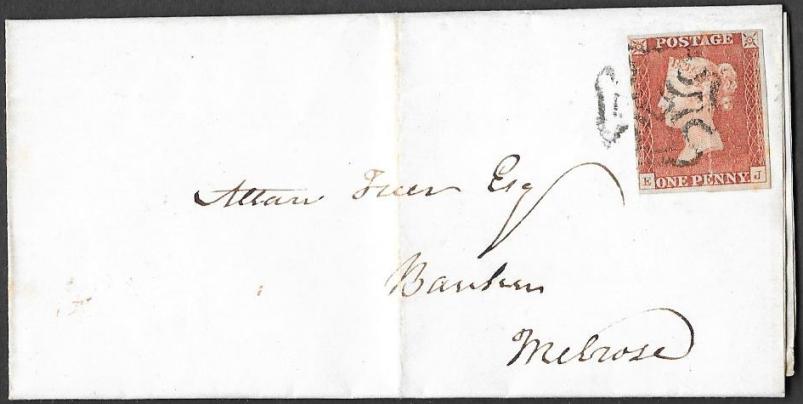 POSTAGE
E J
ONE PENNY
Allan Freer Esq
Banker
Melrose